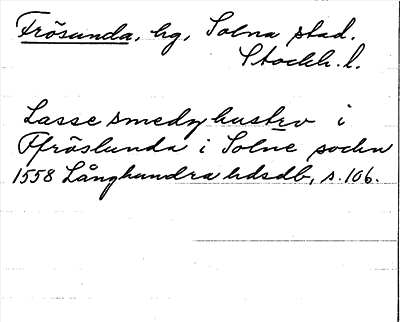 Frösunda, hg, Solna stad.
Stockh. l.
Lasse smedz hustrv i
Ffröslunda i Solne sochn
1558 Långhundra hdsdb, s. 106.